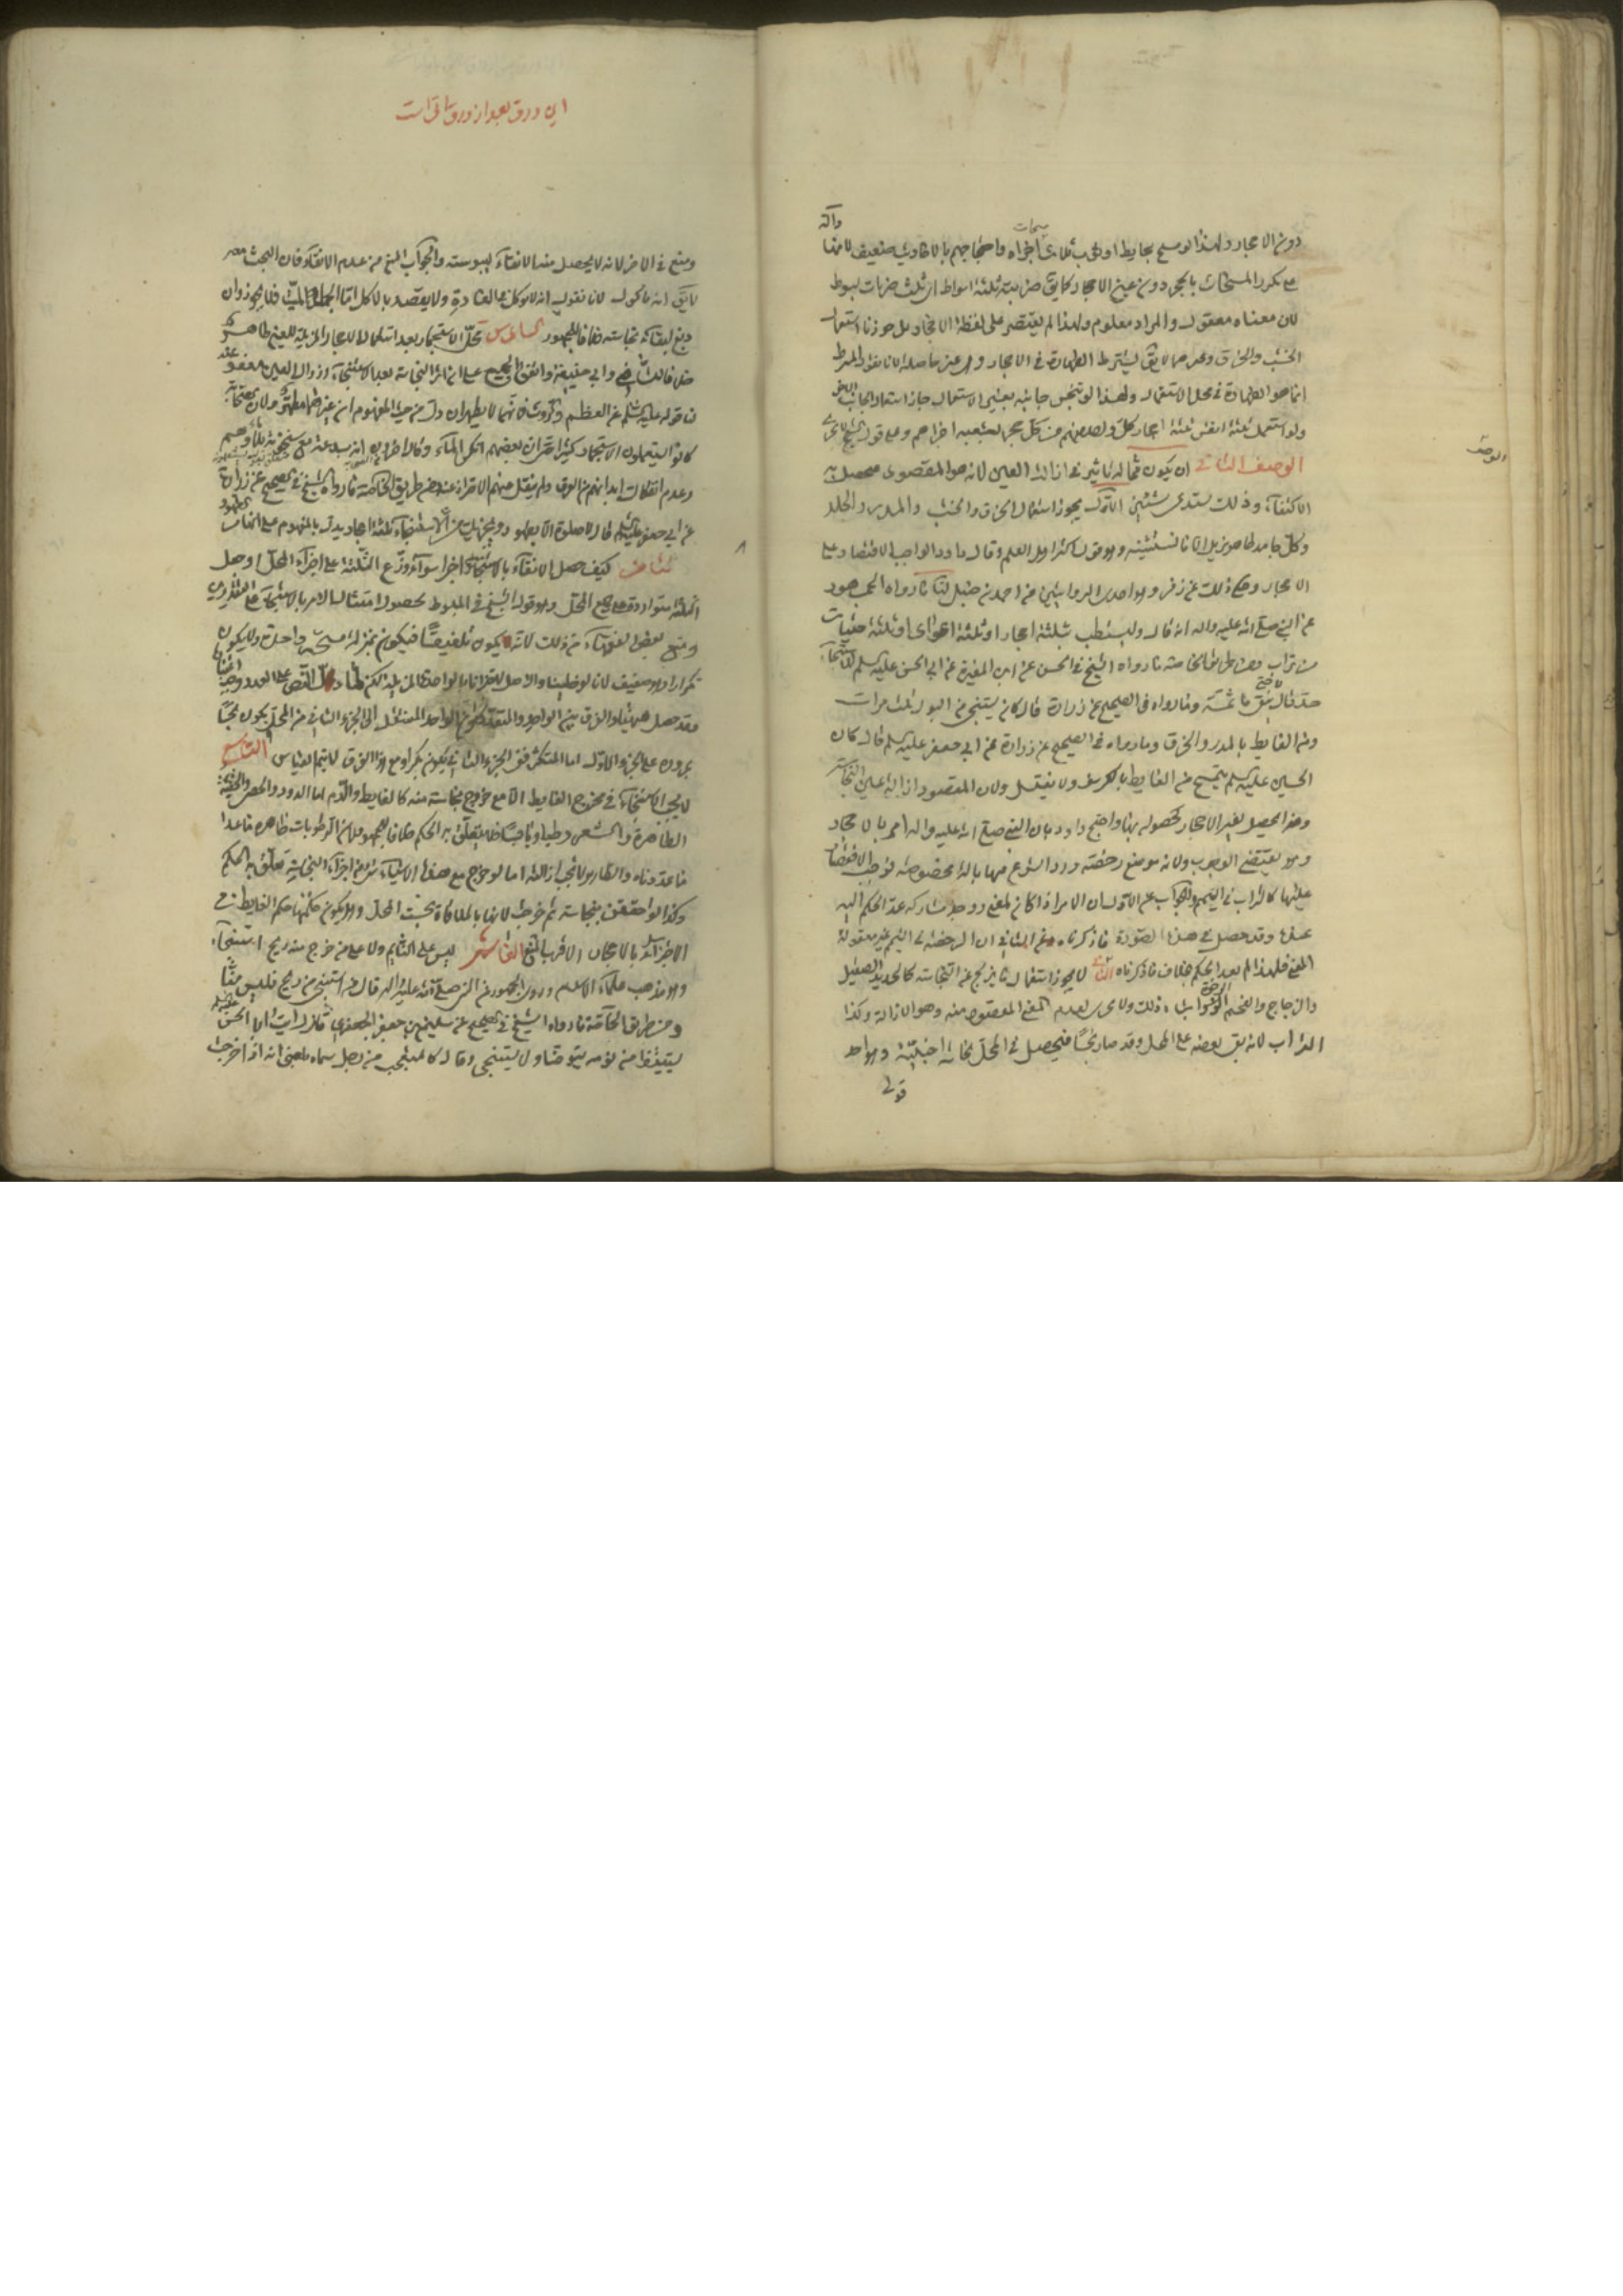 وآله
دون الاحجار ولهذا لو مسح بحايط او بخشب ثلاث مسحات اجزاه واحتجاجهم بالاحاديث ضعيف لانها
على تكرر المسحات بالحجر دون عين الاحجار كما يق ضرابته ثلثة اسواط اى ثلث ضربات بسوط
لان معناه معقول والمراد معلوم ولهذا لم يقتصر على لفظة الاحجار بل جوزنا استعمال
الخشب والخرق والمدر لا يق يشترط الطهارة فى الاحجار وهى غير حاصلة لانا نقول الشرط
انما هو الطهارة فى محل الاستعمال ولهذا لو تنجس جانبه بغير الاستعمال جاز استعمال الجانب الاخر
ولو استعمل ثلثة انفس ثلثة احجار كل واحد منهم من كل حجر بشعبة اجزاهم وعلى قول الشيخ لا يجزى
الوصف الثانى ان يكون مما له تاثير فى ازالة العين لانه هو المقصود فيحصل به
الاكتفاء وذلك يستدعى شيئين الاول يجوز استعمال الخرق والخشب والمدر والجلد
وكل جامد طاهر مزيل الا ما نستثنيه وهو قول اكثر اهل العلم وقال داود الواجب الاقتصار على
الاحجار وحكى ذلك عن زفر وهو احدى الروايتين عن احمد بن حنبل لنا ما رواه الجمهور
عن النبى صلى الله عليه واله انه قال وليستطب بثلثة احجار او ثلثة اعواد او ثلثة حثيات
من تراب ومن طريق الخاصة ما رواه الشيخ فى الحسن عن ابن المغيرة عن ابى الحسن عليه السلم للاستنجاء
حد قال لا حتى ينقى ما ثمة وما رواه فى الصحيح عن زرارة قال كان يستنجى من البول ثلث مرات
ومن الغايط بالمدر والخرق وما رواه فى الصحيح عن زرارة عن ابى جعفر عليه السلم قال كان
الحسين عليه السلم يتمسح من الغايط بالكرسف ولا يغتسل ولان المقصود ازالة عين النجاسة
وهو يحصل بغير الاحجار كحصوله بها واحتج داود بان النبى صلى الله عليه واله امر بالاحجار
وهو يقتضى الوجوب ولانه موضع رخصة ورد الشرع فيها بالة مخصوصة فوجب الاقتصار
عليها كالتراب فى التيمم والجواب عن الاول ان الامر اذا كان لمعنى ووجد مشاركه عدى الحكم اليه
عندنا وقد حصل فى هذه الصورة ما ذكرناه وعن الثانى ان الرخصة فى التيمم غير معقولة
المعنى فلهذا لم يعد الحكم بخلاف ما ذكرناه الثانى لا يجوز استعمال ما يزلج عن النجاسة كالحديد الصقيل
والزجاج والفحم الرخو واشباه ذلك ولا يجزى لعدم المعنى المقصود منه وهو الازالة وكذا
التراب لانه يبق بعضه على المحل وقد صار نجسا فيحصل فى المحل نجاسة اجنبية وهو احد
قولى
الوصف
این ورق بعد از ورق سابق است
ومنع فى الاخر لانه لا يحصل منه الانقاء ليبوسته والجواب المنع من عدم الانقاء فان البحث معه
لا يق انه ماكول لانا نقول انه لا يوكل فى العادة ولا يقصد بالاكل اما الجلد الميت فلا يجوز وان
دبغ لبقائه نجاسته خلافا للجمهور السادس محل الاستجمار بعد استعمال الاحجار المزيلة للعين طاهر
خلافا للشافعى وابى حنيفة واتفق الجميع على ان اثر النجاسة بعد الاستنجاء وزوال العين معفو عنه
لنا قوله عليه السلم عن العظم والروث فانهما لا يطهران دل من حيث المفهوم ان غيرهما مطهر ولان الصحابة
كانوا يستعملون الاستجمار كثيرا حتى ان بعضهم انكر الماء وقال اخرون انه بدعة مع سخونة بلادهم
وعدم انفكاك ابدانهم من العرق ولم ينقل عنهم الاحتراز عنه ومن طريق الخاصة ما رواه الشيخ فى الصحيح عن زرارة
عن ابى جعفر عليه السلم قال لا صلوة الا بطهور ويجزيك من الاستنجاء ثلثة احجار يدل بالمفهوم على انها من الطهور
الثامن كيف حصل الانقاء بالاستنجاء اجزا سواء وزع الثلثة على اجزاء المحل او جعل
الثلثة متواردة على جميع المحل وهو قول الشيخ فى المبسوط لحصول امتثال الامر بالاستنجاء على التقديرين
ومنع بعض الفقهاء من ذلك لانه يكون تلفيقا فيكون بمنزلة مسحة واحدة ولا يكون
تكرارا وهو ضعيف
عدوناه عن الجزء الاول اما المتكثر ففى الجزء الثانى يكون بكرا ومع هذا الفرق لا يتم القياس التاسع
لا يجب الاستنجاء فى مخرج الغايط الا مع خروج نجاسة منه كالغايط والدم اما الدود والحصى والحقنة
الطاهرة والشعر رطبا ويابسا فلا يتعلق به الحكم خلافا للجمهور لان الرطوبات طاهرة ما عدا
ما عددناه والطاهر لا يجب ازالته اما لو خرج مع هذه الاشياء شئ من اجزاء النجاسة تعلق به الحكم
وكذا لو احتقن بنجاسة ثم خرجت لانها بالملاقاة نجست المحل وهل يكون حكمها حكم الغايط فى
الاجتزاء بالاحجار الاقرب المنع العاشر ليس على النائم ولا على من خرج منه ريح استنجاء
وهو مذهب علماء الاسلام وروى الجمهور عن النبى صلى الله عليه واله قال من استنجى من ريح فليس منا
ومن طريق الخاصة ما رواه الشيخ فى الصحيح عن سليمن بن جعفر الجعفرى قال رايت ابا الحسن عليه السلم
يستيقظ من نومه يتوضا ولا يستنجى وقال كالمتعجب من رجل سماه بلغنى انه اذا خرجت